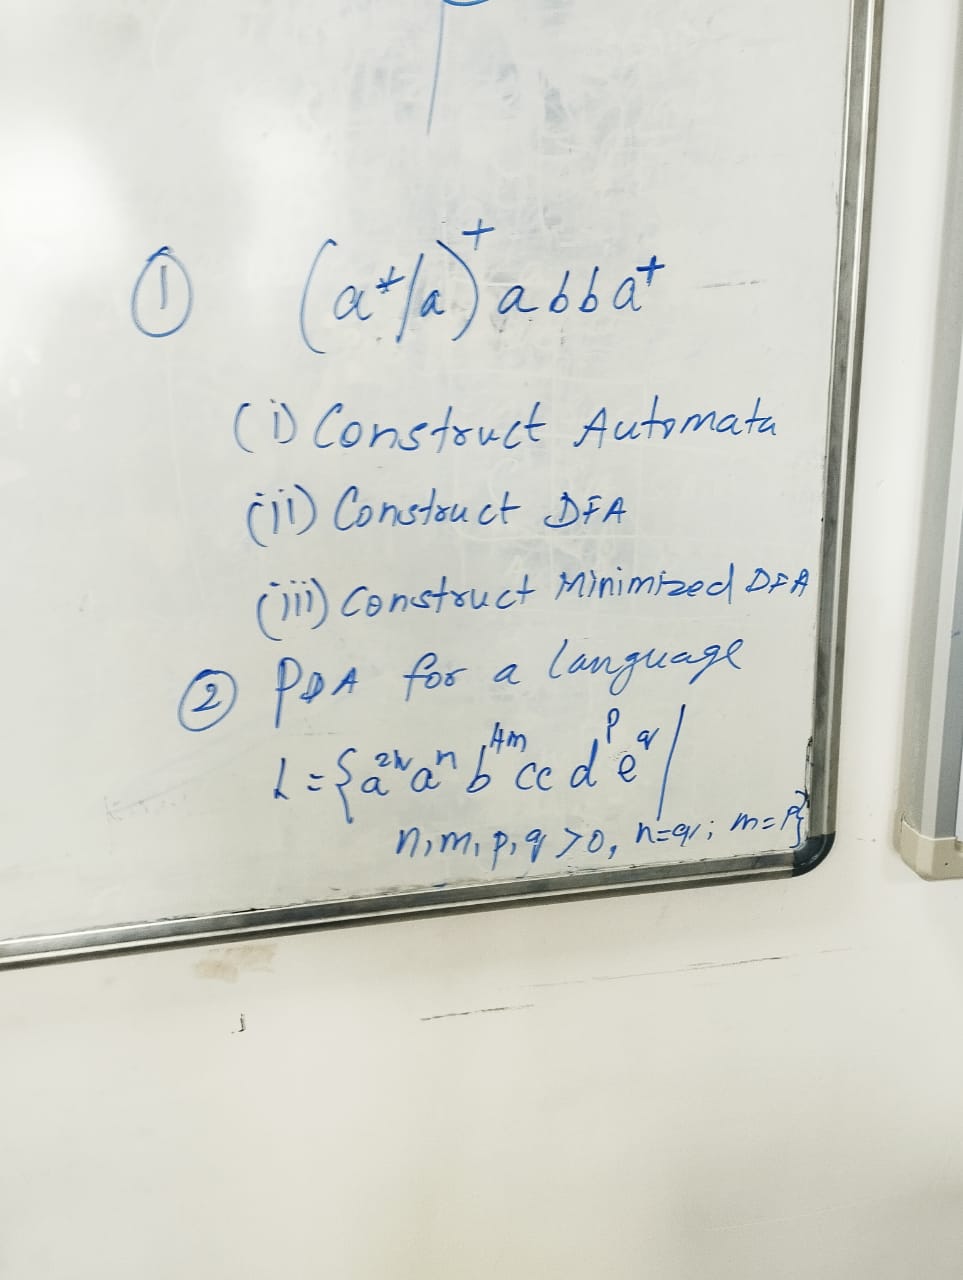 ① (a*/a)⁺ a b b a⁺
(i) Construct Automata
(ii) Construct DFA
(iii) Construct Minimized DFA
② PDA for a language
L = {a²ⁿ aⁿ b⁴ᵐ cc dᵖ e^q |
n, m, p, q > 0, n = q; m = p}